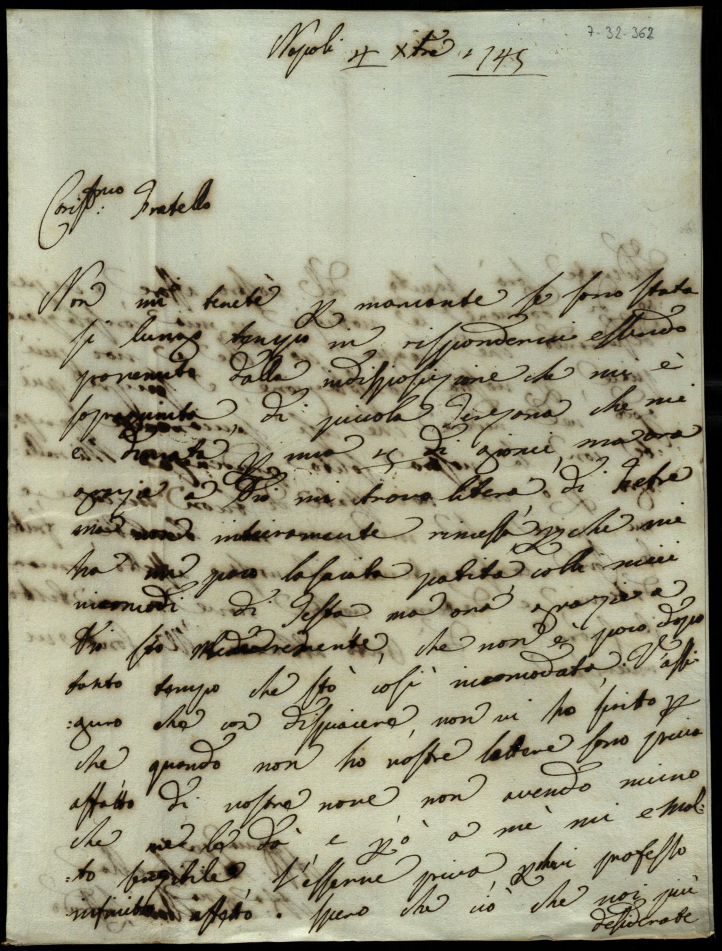 7-32-362
Napoli 4 Xbre 1745
Carissmo: Fratello
Non mi tenete p mancante se sono stata
si lungo tempo in rispondervi essendo
provenuto dalla indisposizione che mi è
sopragiunta, di piccola che mi
è durata p mia di giorni, ma ora
grazia a Dio mi trovo libera di Febre
ma non interamente rimessa, p che mi
ha un poco lasciata patita colli miei
incomodi di Testa ma ora grazie a
Dio stò mediocremente, che non è poco dopo
tanto tempo che stò così incomodata. V'assi
:guro che con dispiacere non vi ho scrito p
che quando non ho vostre lettere sono priva
affatto di vostre nove non avendo niuno
che me le dà e p ò a mè mi e mol:
:to sensibile l'esserne priva p chè vi professo
infinito affetto. spero che ciò che voi più
desiderate